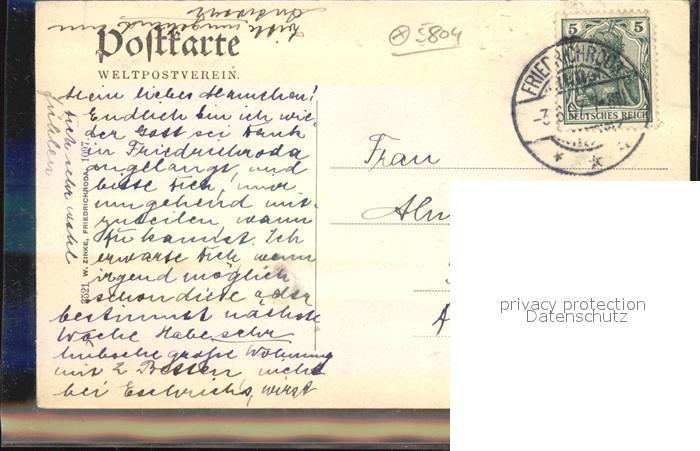 Bitte umgehend um
Antwort
Postkarte
WELTPOSTVEREIN.
5804
5
5
FRIEDRICHRODA
DEUTSCHES REICH
Mein liebes Mamchen!
Endlich bin ich wie-
der Gott sei Dank
in Friedrichroda
angelangt, und
bitte Dich, mir
umgehend mit-
zuteilen wann
Du kommst. Ich
erwarte Dich, wenn
irgend möglich
schon diese oder
bestimmt nächste
Woche. Habe sehr
hübsche große Wohnung
mit 2 Betten, nicht
bei Eschrichs, wirst
Dich sehr wohl
fühlen
2521 W. ZINKE, FRIEDRICHRODA 1907.
Frau
privacy protection
Datenschutz